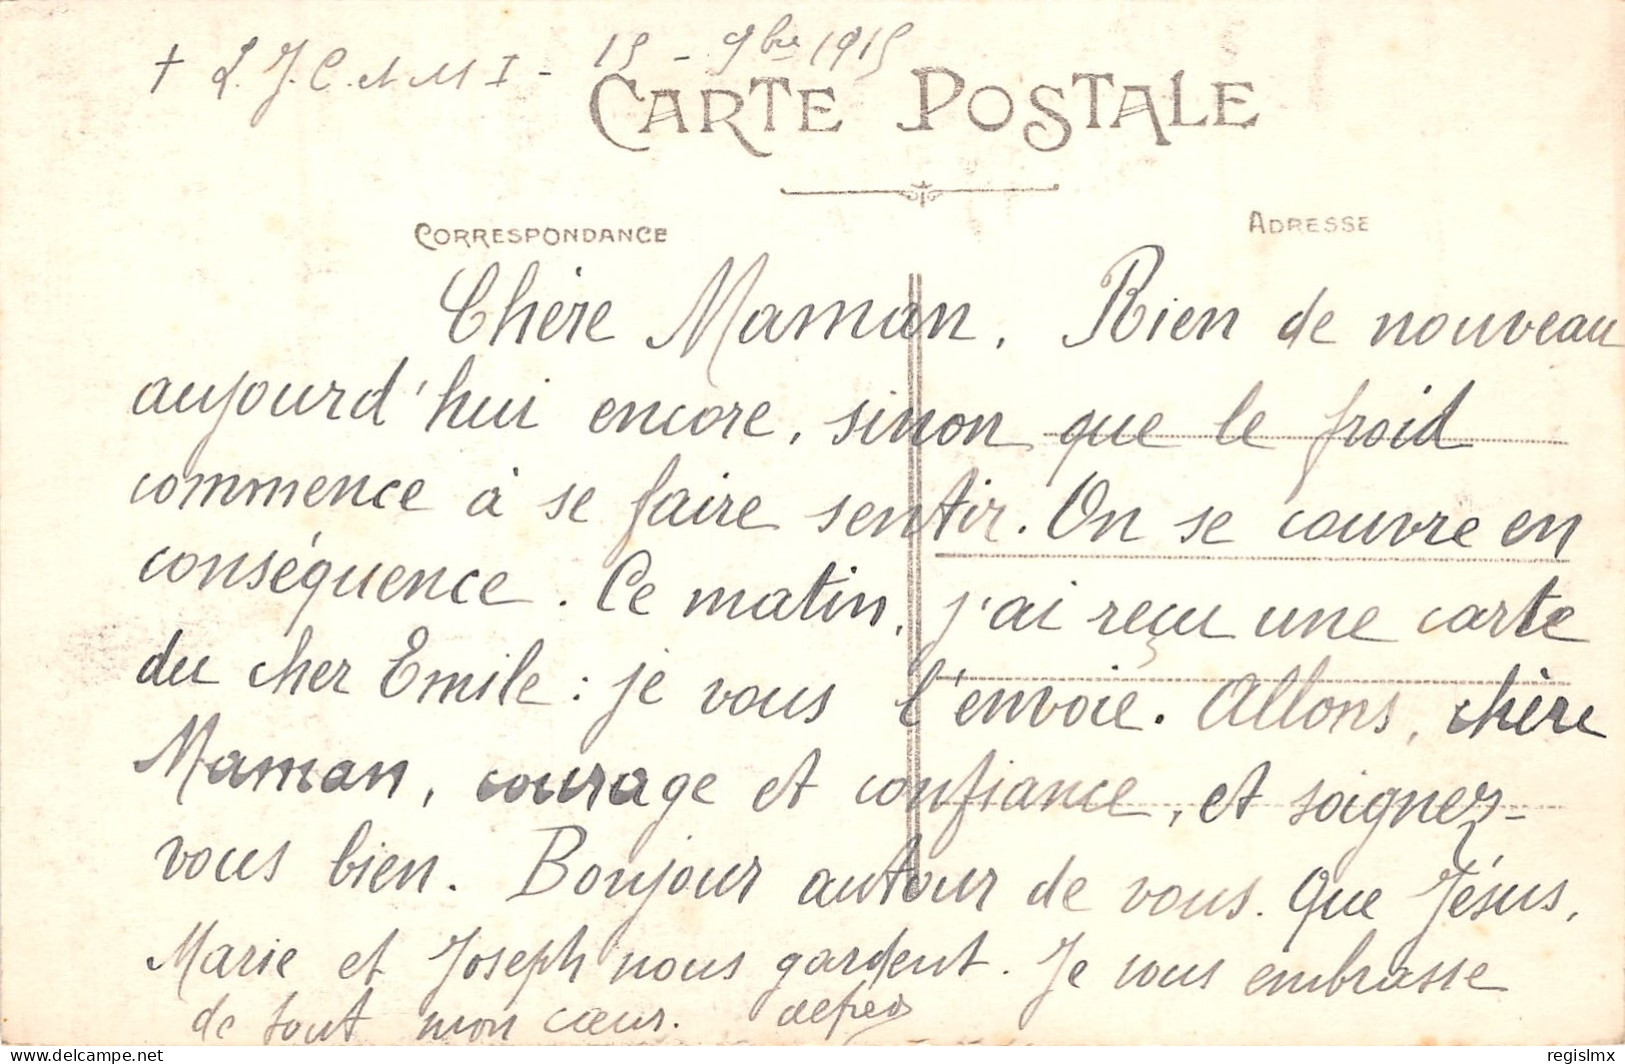 + L. J. C. et M I - 15 - 9bre 1915
CARTE POSTALE
CORRESPONDANCE
ADRESSE
Chère Maman, Rien de nouveau
aujourd'hui encore, sinon que le froid
commence à se faire sentir. On se couvre en
conséquence. Ce matin, j'ai reçu une carte
du cher Emile : je vous l'envoie. Allons, chère
Maman, courage et confiance, et soignez-
vous bien. Bonjour autour de vous. Que Jésus,
Marie et Joseph nous gardent. Je vous embrasse
de tout mon cœur.
delcampe.net
regislmx